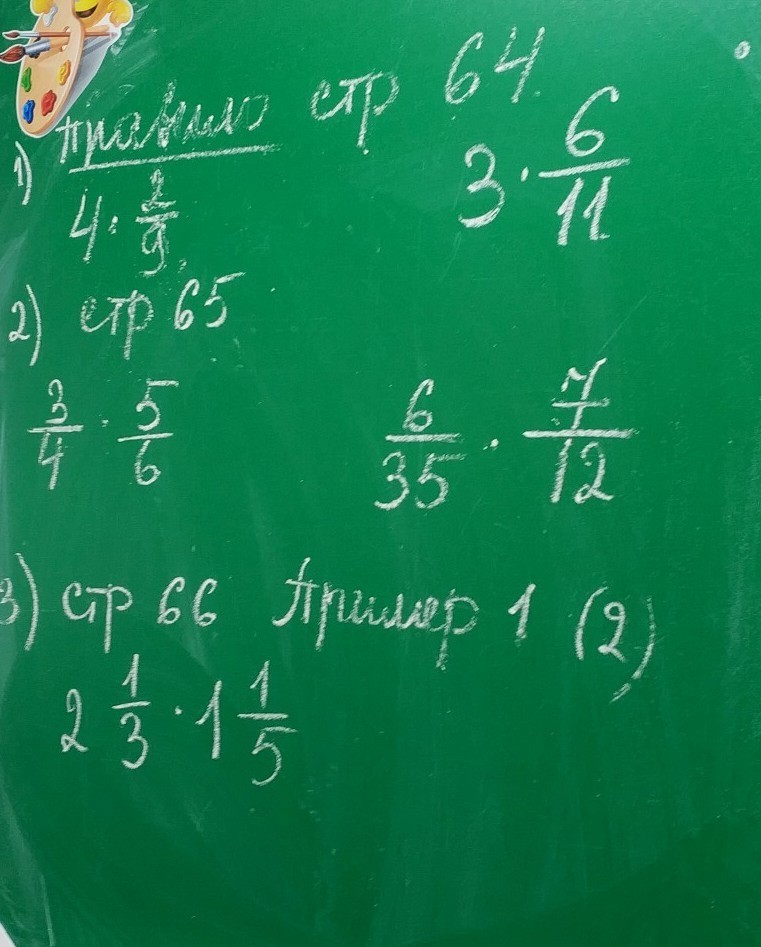 Правило стр 64
1) 4 · 2/9 3 · 6/11
2) стр 65
3/4 · 5/6 6/35 · 7/12
3) стр 66 Пример 1 (2)
2 1/3 · 1 1/5